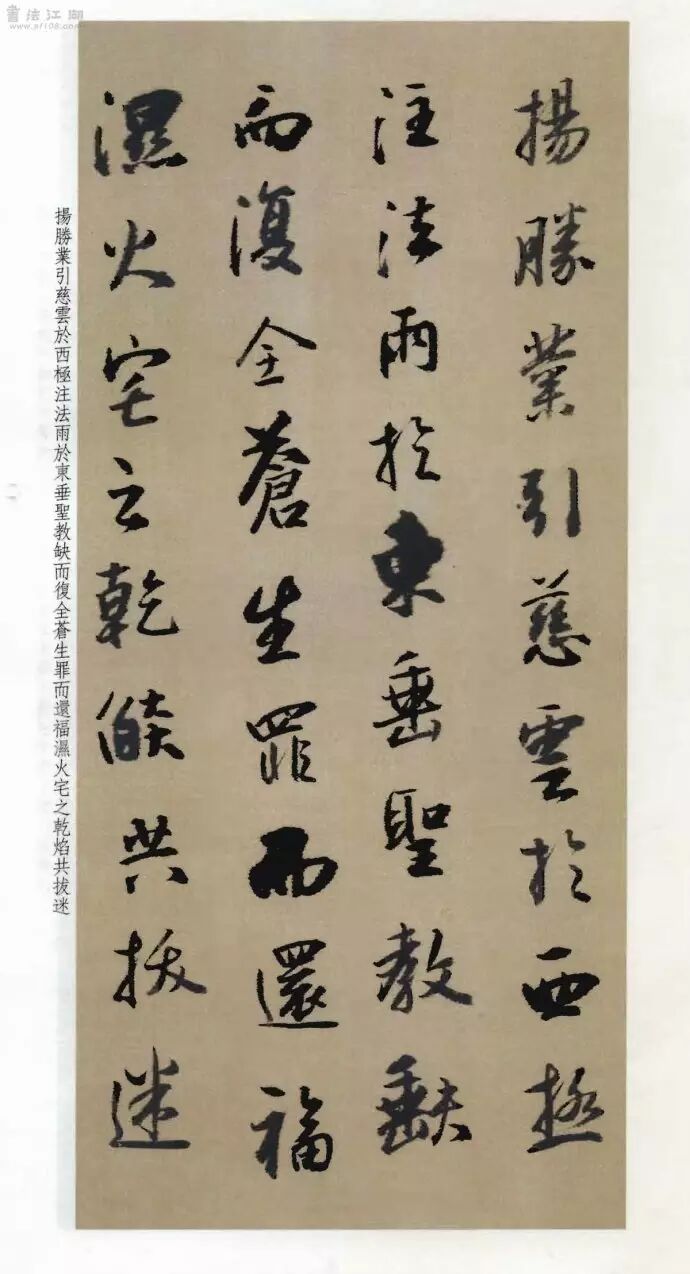 書法江湖
www.sf108.com
揚勝業引慈雲於西極
注法雨於東垂聖教缺
而復全蒼生罪而還福
濕火宅之乾焰共拔迷
揚勝業引慈雲於西極注法雨於東垂聖教缺而復全蒼生罪而還福濕火宅之乾焰共拔迷